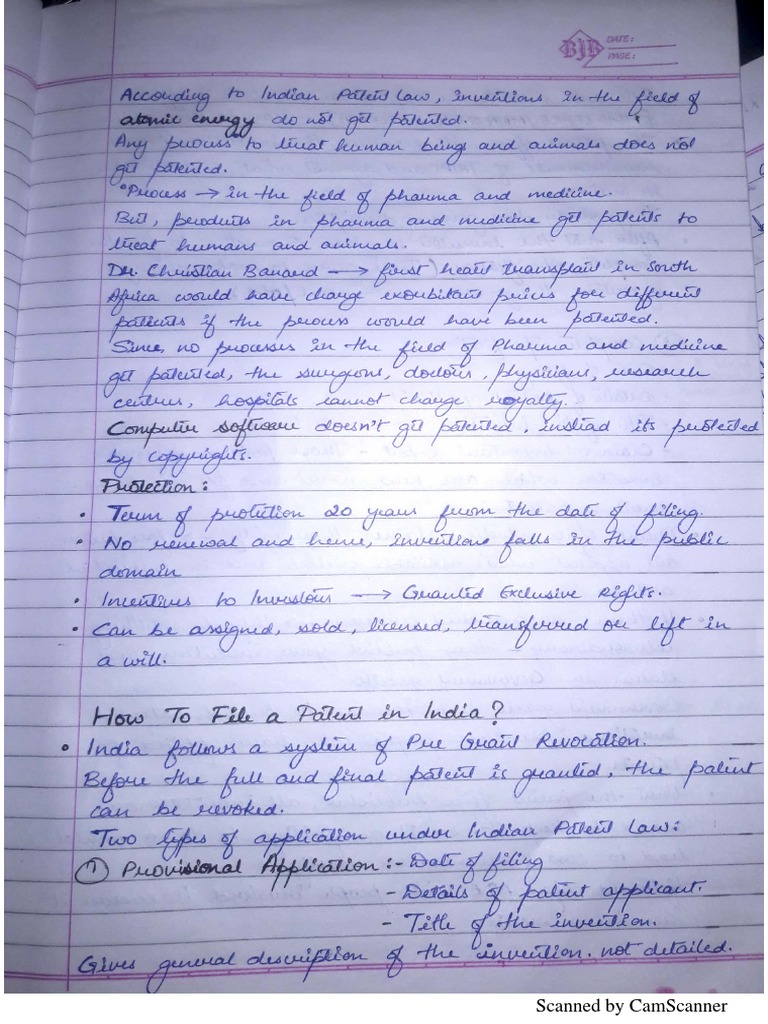 BJB DATE:
PAGE:
According to Indian Patent Law, inventions in the field of
atomic energy do not get patented.
Any process to treat human beings and animals does not
get patented.
• Process → in the field of pharma and medicine.
But, products in pharma and medicine get patents to
treat humans and animals.
Dr. Christian Banard → first heart transplant in South
Africa would have charge exorbitant prices for different
patients if the process would have been patented.
Since, no processes in the field of Pharma and medicine
get patented, the surgeons, doctors, physicians, research
centres, hospitals cannot charge royalty.
Computer software doesn't get patented, instead its protected
by copyrights.
Protection:
• Term of protection 20 years from the date of filing.
• No renewal and hence, inventions falls in the public
domain
• Incentives to Investors → Granted Exclusive Rights.
• Can be assigned, sold, licensed, transferred or left in
a will.
How To File a Patent in India?
• India follows a system of Pre Grant Revocation.
Before the full and final patent is granted, the patent
can be revoked.
Two types of application under Indian Patent Law:
① Provisional Application:- Date of filing
- Details of patent applicant.
- Title of the invention.
Gives general description of the invention. not detailed.
Scanned by CamScanner